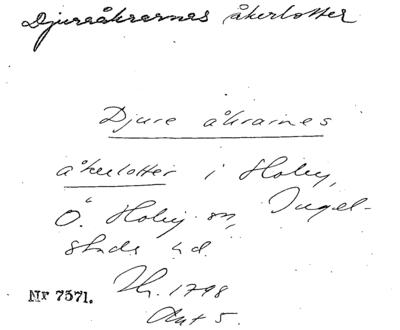 Djureåkrarnes åkerlotter
Djure åkrarnes
åkerlotter i Hoby,
Ö. Hoby sn, Ingel-
stads hd.
Nr 7571.
1798
Akt 5.